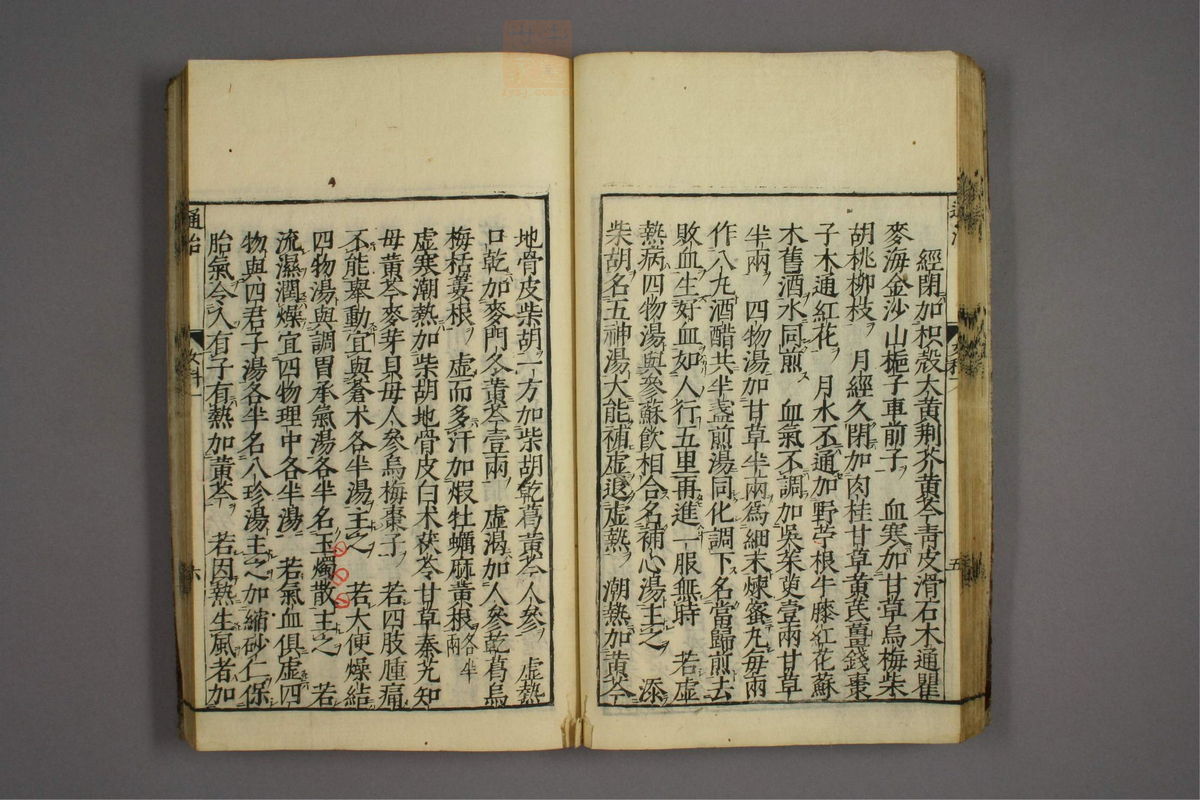 經閉加枳殼大黃荆芥黃芩青皮滑石木通瞿
麥海金沙山梔子車前子 血寒加甘草烏梅柴
胡桃柳枝 月經久閉加肉桂甘草黃芪薑錢棗
子木通紅花 月水不通加野苧根牛膝紅花蘇
木舊酒水同煎 血氣不調加吳茱萸壹兩甘草
半兩 四物湯加甘草半兩爲細末煉蜜丸每兩
作八丸酒醋共半盞煎湯同化調下名當歸煎去
敗血生好血如人行五里再進一服無時 若虛
熱病四物湯與參蘇飲相合名補心湯主之 添
柴胡名五神湯大能補虛退虛熱 潮熱加黃芩
五
地骨皮柴胡一方加柴胡乾葛黃芩人參 虛熱
口乾加麥門冬黃芩壹兩 虛渴加人參乾葛烏
梅栝蔞根 虛而多汗加煆牡蠣麻黃根各半兩
虛寒潮熱加柴胡地骨皮白术茯苓甘草秦艽知
母黃芩麥芽貝母人參烏梅棗子 若四肢腫痛
不能舉動宜與蒼术各半湯主之 若大便燥結
四物湯與調胃承氣湯各半名玉燭散主之 若
流濕潤燥宜四物理中各半湯 若氣血俱虛四
物與四君子湯各半名八珍湯主之加縮砂仁保
胎氣令人有子有熱加黃芩 若因熱生風者加
通治 女科一 六